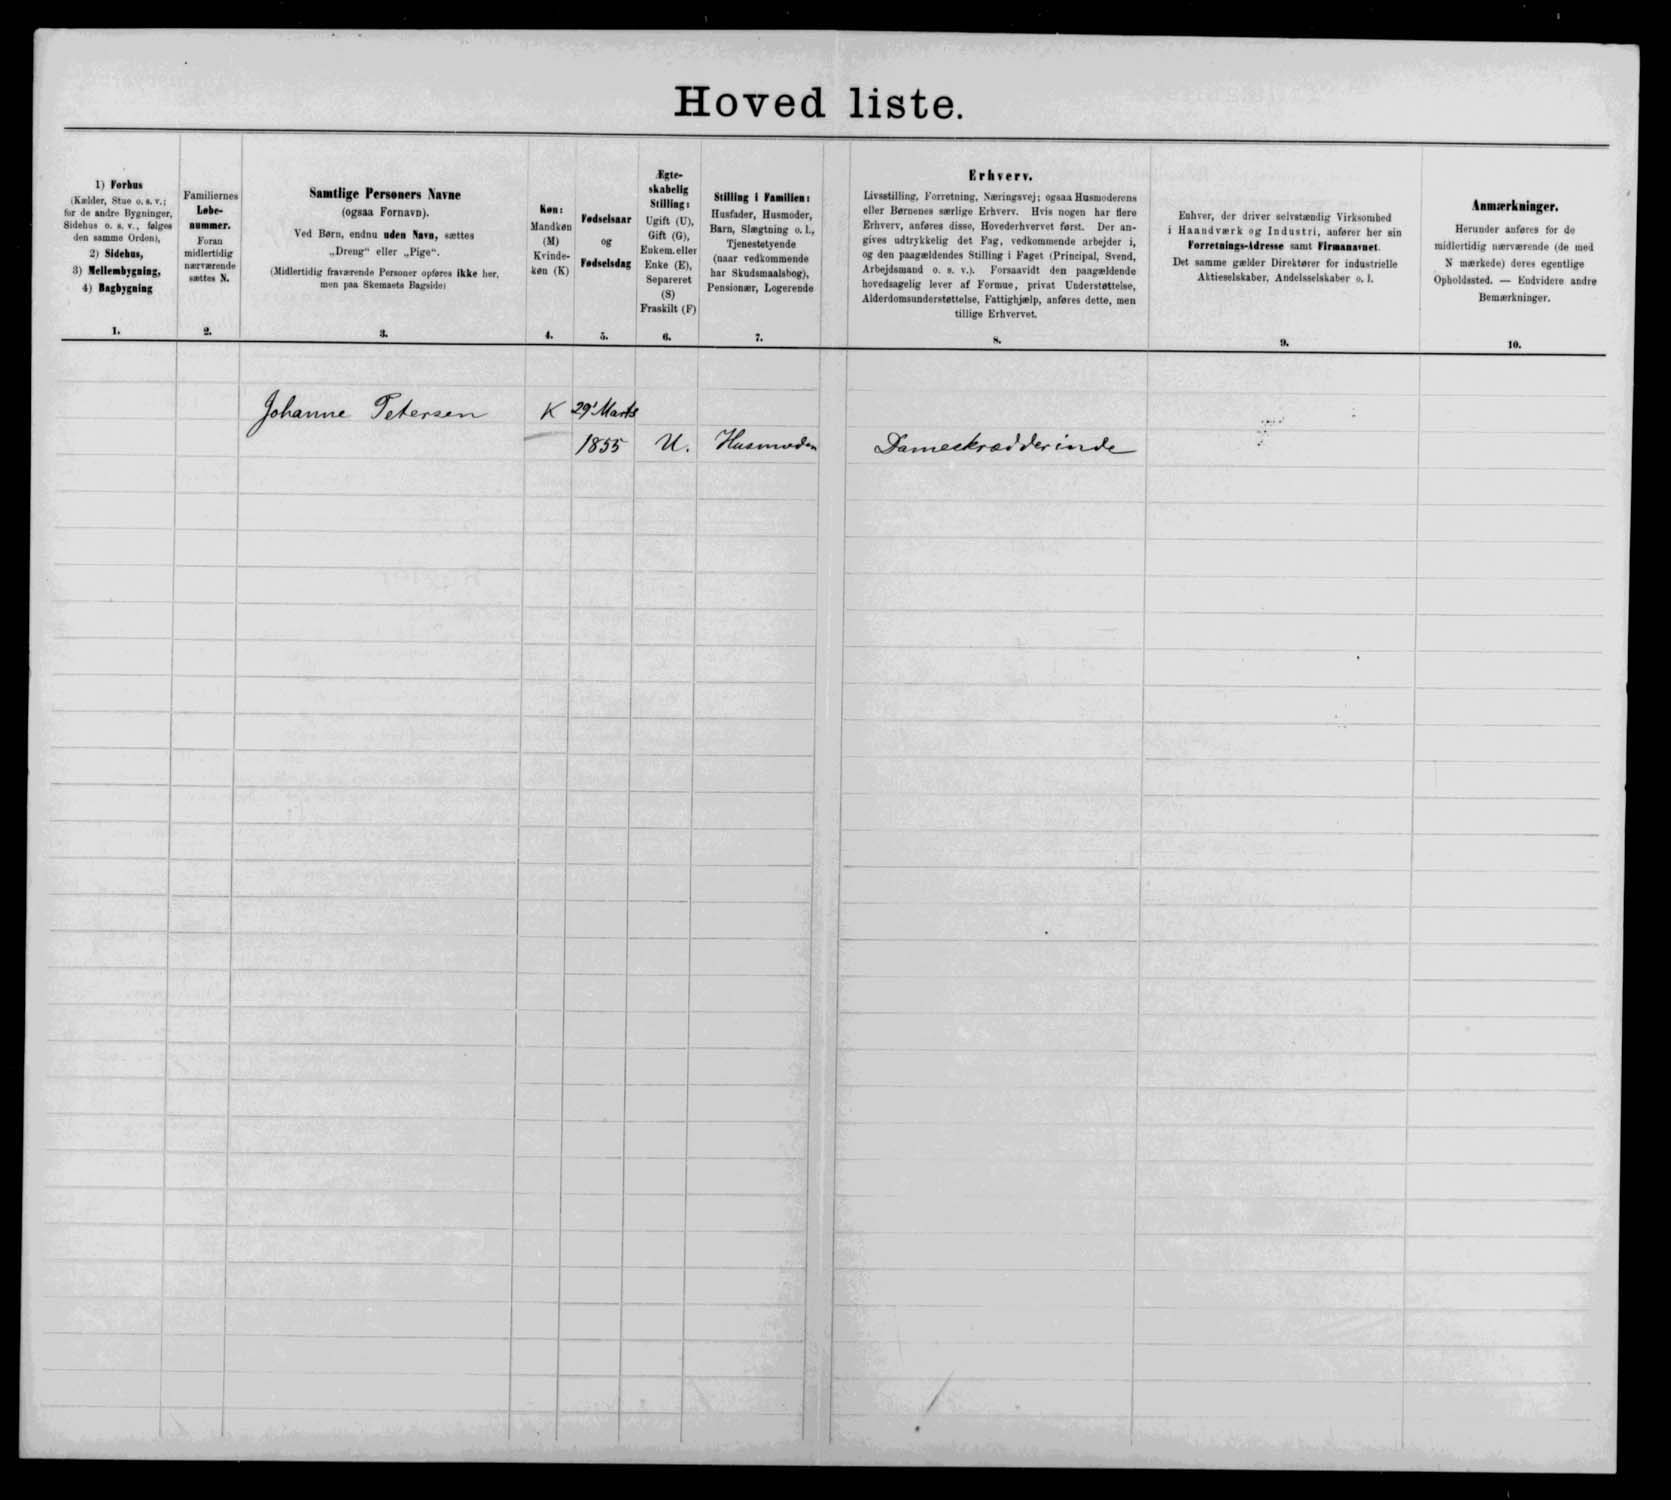 Hoved liste.
1) Forhus
(Kælder, Stue o. s. v.;
for de andre Bygninger,
Sidehus o. s. v., følges
den samme Orden),
2) Sidehus,
3) Mellembygning,
4) Bagbygning
1.
Familiernes
Løbe-
nummer.
Foran
midlertidig
nærværende
sættes N.
2.
Samtlige Personers Navne
(ogsaa Fornavn).
Ved Børn, endnu uden Navn, sættes
„Dreng“ eller „Pige“.
(Midlertidig fraværende Personer opføres ikke her,
men paa Skemaets Bagside)
3.
Køn:
Mandkøn
(M)
Kvinde-
køn (K)
4.
Fødselsaar
og
Fødselsdag
5.
Ægte-
skabelig
Stilling:
Ugift (U),
Gift (G),
Enkem. eller
Enke (E),
Separeret
(S)
Fraskilt (F)
6.
Stilling i Familien:
Husfader, Husmoder,
Barn, Slægtning o. l.,
Tjenestetyende
(naar vedkommende
har Skudsmaalsbog),
Pensionær, Logerende
7.
Erhverv.
Livsstilling, Forretning, Næringsvej; ogsaa Husmoderens
eller Børnenes særlige Erhverv. Hvis nogen har flere
Erhverv, anføres disse, Hovederhvervet først. Der an-
gives udtrykkelig det Fag, vedkommende arbejder i,
og den paagældendes Stilling i Faget (Principal, Svend,
Arbejdsmand o. s. v.). Forsaavidt den paagældende
hovedsagelig lever af Formue, privat Understøttelse,
Alderdomsunderstøttelse, Fattighjælp, anføres dette, men
tillige Erhvervet.
8.
Enhver, der driver selvstændig Virksomhed
i Haandværk og Industri, anfører her sin
Forretnings-Adresse samt Firmanavnet.
Det samme gælder Direktører for industrielle
Aktieselskaber, Andelsselskaber o. l.
9.
Anmærkninger.
Herunder anføres for de
midlertidig nærværende (de med
N mærkede) deres egentlige
Opholdssted. — Endvidere andre
Bemærkninger.
10.
Johanne Petersen K 29' Marts
1855 U. Husmoder Dameskrædderinde